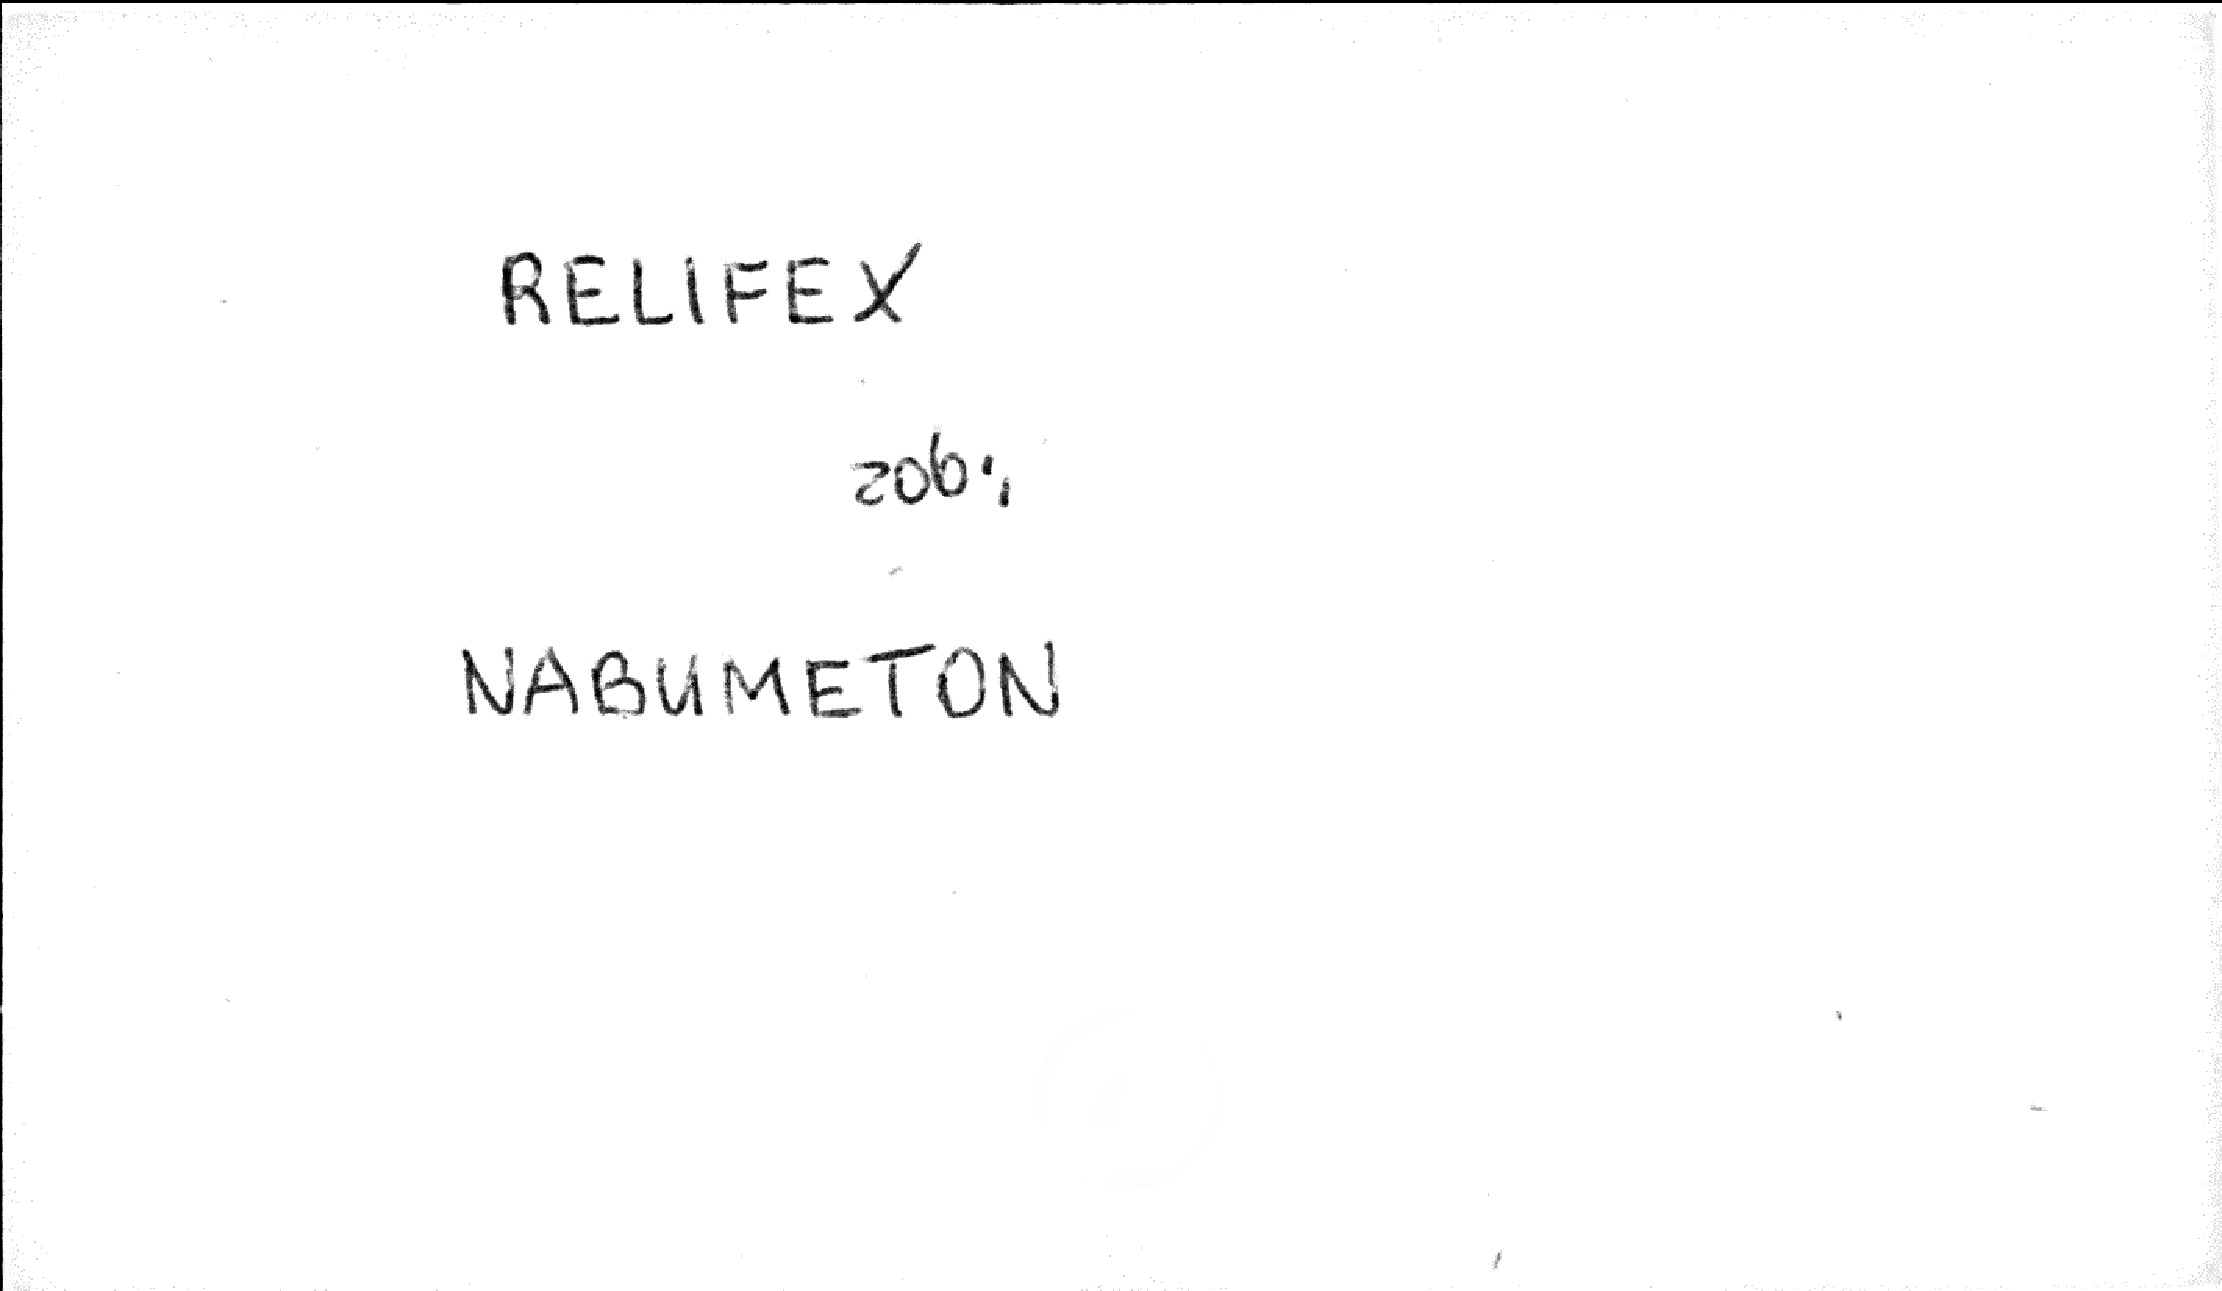 RELIFEX
zob.
NABUMETON